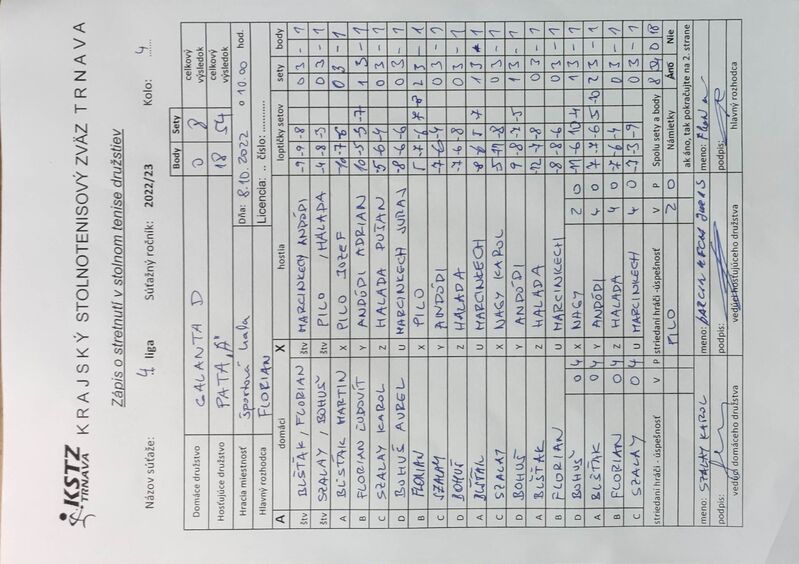 KSTZ
TRNAVA
KRAJSKÝ STOLNOTENISOVÝ ZVÄZ TRNAVA
Zápis o stretnutí v stolnom tenise družstiev
Názov súťaže: 4 liga Súťažný ročník: 2022/23 Kolo: 4
Domáce družstvo GALANTA D Body Sety celkový výsledok
0 8
Hosťujúce družstvo PATA "A" 18 54 celkový výsledok
Hracia miestnosť Športová hala Dňa: 8.10.2022 o 10.00 hod.
Hlavný rozhodca FLORIAN Licencia: .. číslo: ............
A domáci X hostia loptičky setov sety body
štv BLŠŤAK, FLORIAN štv MARCINKECH ANDÓDI -9-9-8 03-1
štv SZALAY / BOHUŠ štv PILO / HALADA -4-8-9 03-1
A BLŠŤAK MARTIN X PILO JOZEF 03-1
B FLORIAN ĽUDOVÍT Y ANDÓDI ADRIAN 10-5-9-7 13-1
C SZALAY KAROL Z HALADA DUŠAN -5-6-4 03-1
D BOHUŠ AUREL U MARCINKECH JURAJ -8-6-6 03-1
B FLORIAN X PILO 23-1
C SZALAY Y ANDÓDI -7-6-4 03-1
D BOHUŠ Z HALADA -7-6-8 03-1
A BLŠŤAK U MARCINKECH 13-1
C SZALAY X NAGY KAROL 03-1
D BOHUŠ Y ANDÓDI 9-8-2-5 13-1
A BLŠŤAK Z HALADA -12-7-8 03-1
B FLORIAN U MARCINKECH -8-8-6 03-1
D BOHUŠ 04 X NAGY 20 -11-6 10-4 13-1
A BLŠŤAK 04 Y ANDÓDI 40 23-1
B FLORIAN 04 Z HALADA 40 -7-6-4 03-1
C SZALAY 04 U MARCINKECH 40 -7-3-9 03-1
striedaní hráči - úspešnosť V P striedaní hráči -úspešnosť V P Spolu sety a body 8 54 0 18
PILO 20 Námietky Áno Nie
ak áno, tak pokračujte na 2. strane
meno: SZALAY KAROL meno: meno: Florian
podpis: podpis: podpis:
vedúci domáceho družstva vedúci hosťujúceho družstva hlavný rozhodca